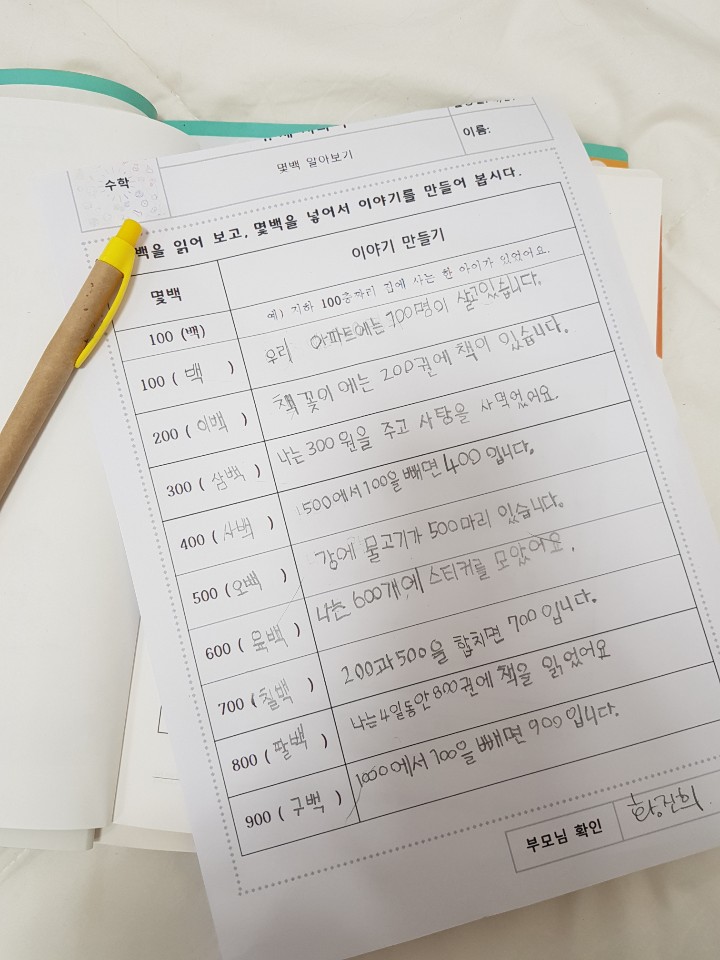 이름:
수학
몇백 알아보기
백을 읽어 보고, 몇백을 넣어서 이야기를 만들어 봅시다.
몇백 이야기 만들기
100 (백) 예) 지하 100층짜리 집에 사는 한 아이가 있었어요.
100 ( 백 ) 우리 아파트에는 100명이 살고있습니다.
200 ( 이백 ) 책 꽂이에는 200권에 책이 있습니다.
300 ( 삼백 ) 나는 300원을 주고 사탕을 사먹었어요.
400 ( 사백 ) 500에서 100을 빼면 400 입니다.
500 ( 오백 ) 강에 물고기가 500마리 있습니다.
600 ( 육백 ) 나는 600개에 스티커를 모았어요.
700 ( 칠백 ) 200과 500을 합치면 700 입니다.
800 ( 팔백 ) 나는 4일동안 800권에 책을 읽었어요
900 ( 구백 ) 1000에서 100을 빼면 900 입니다.
부모님 확인